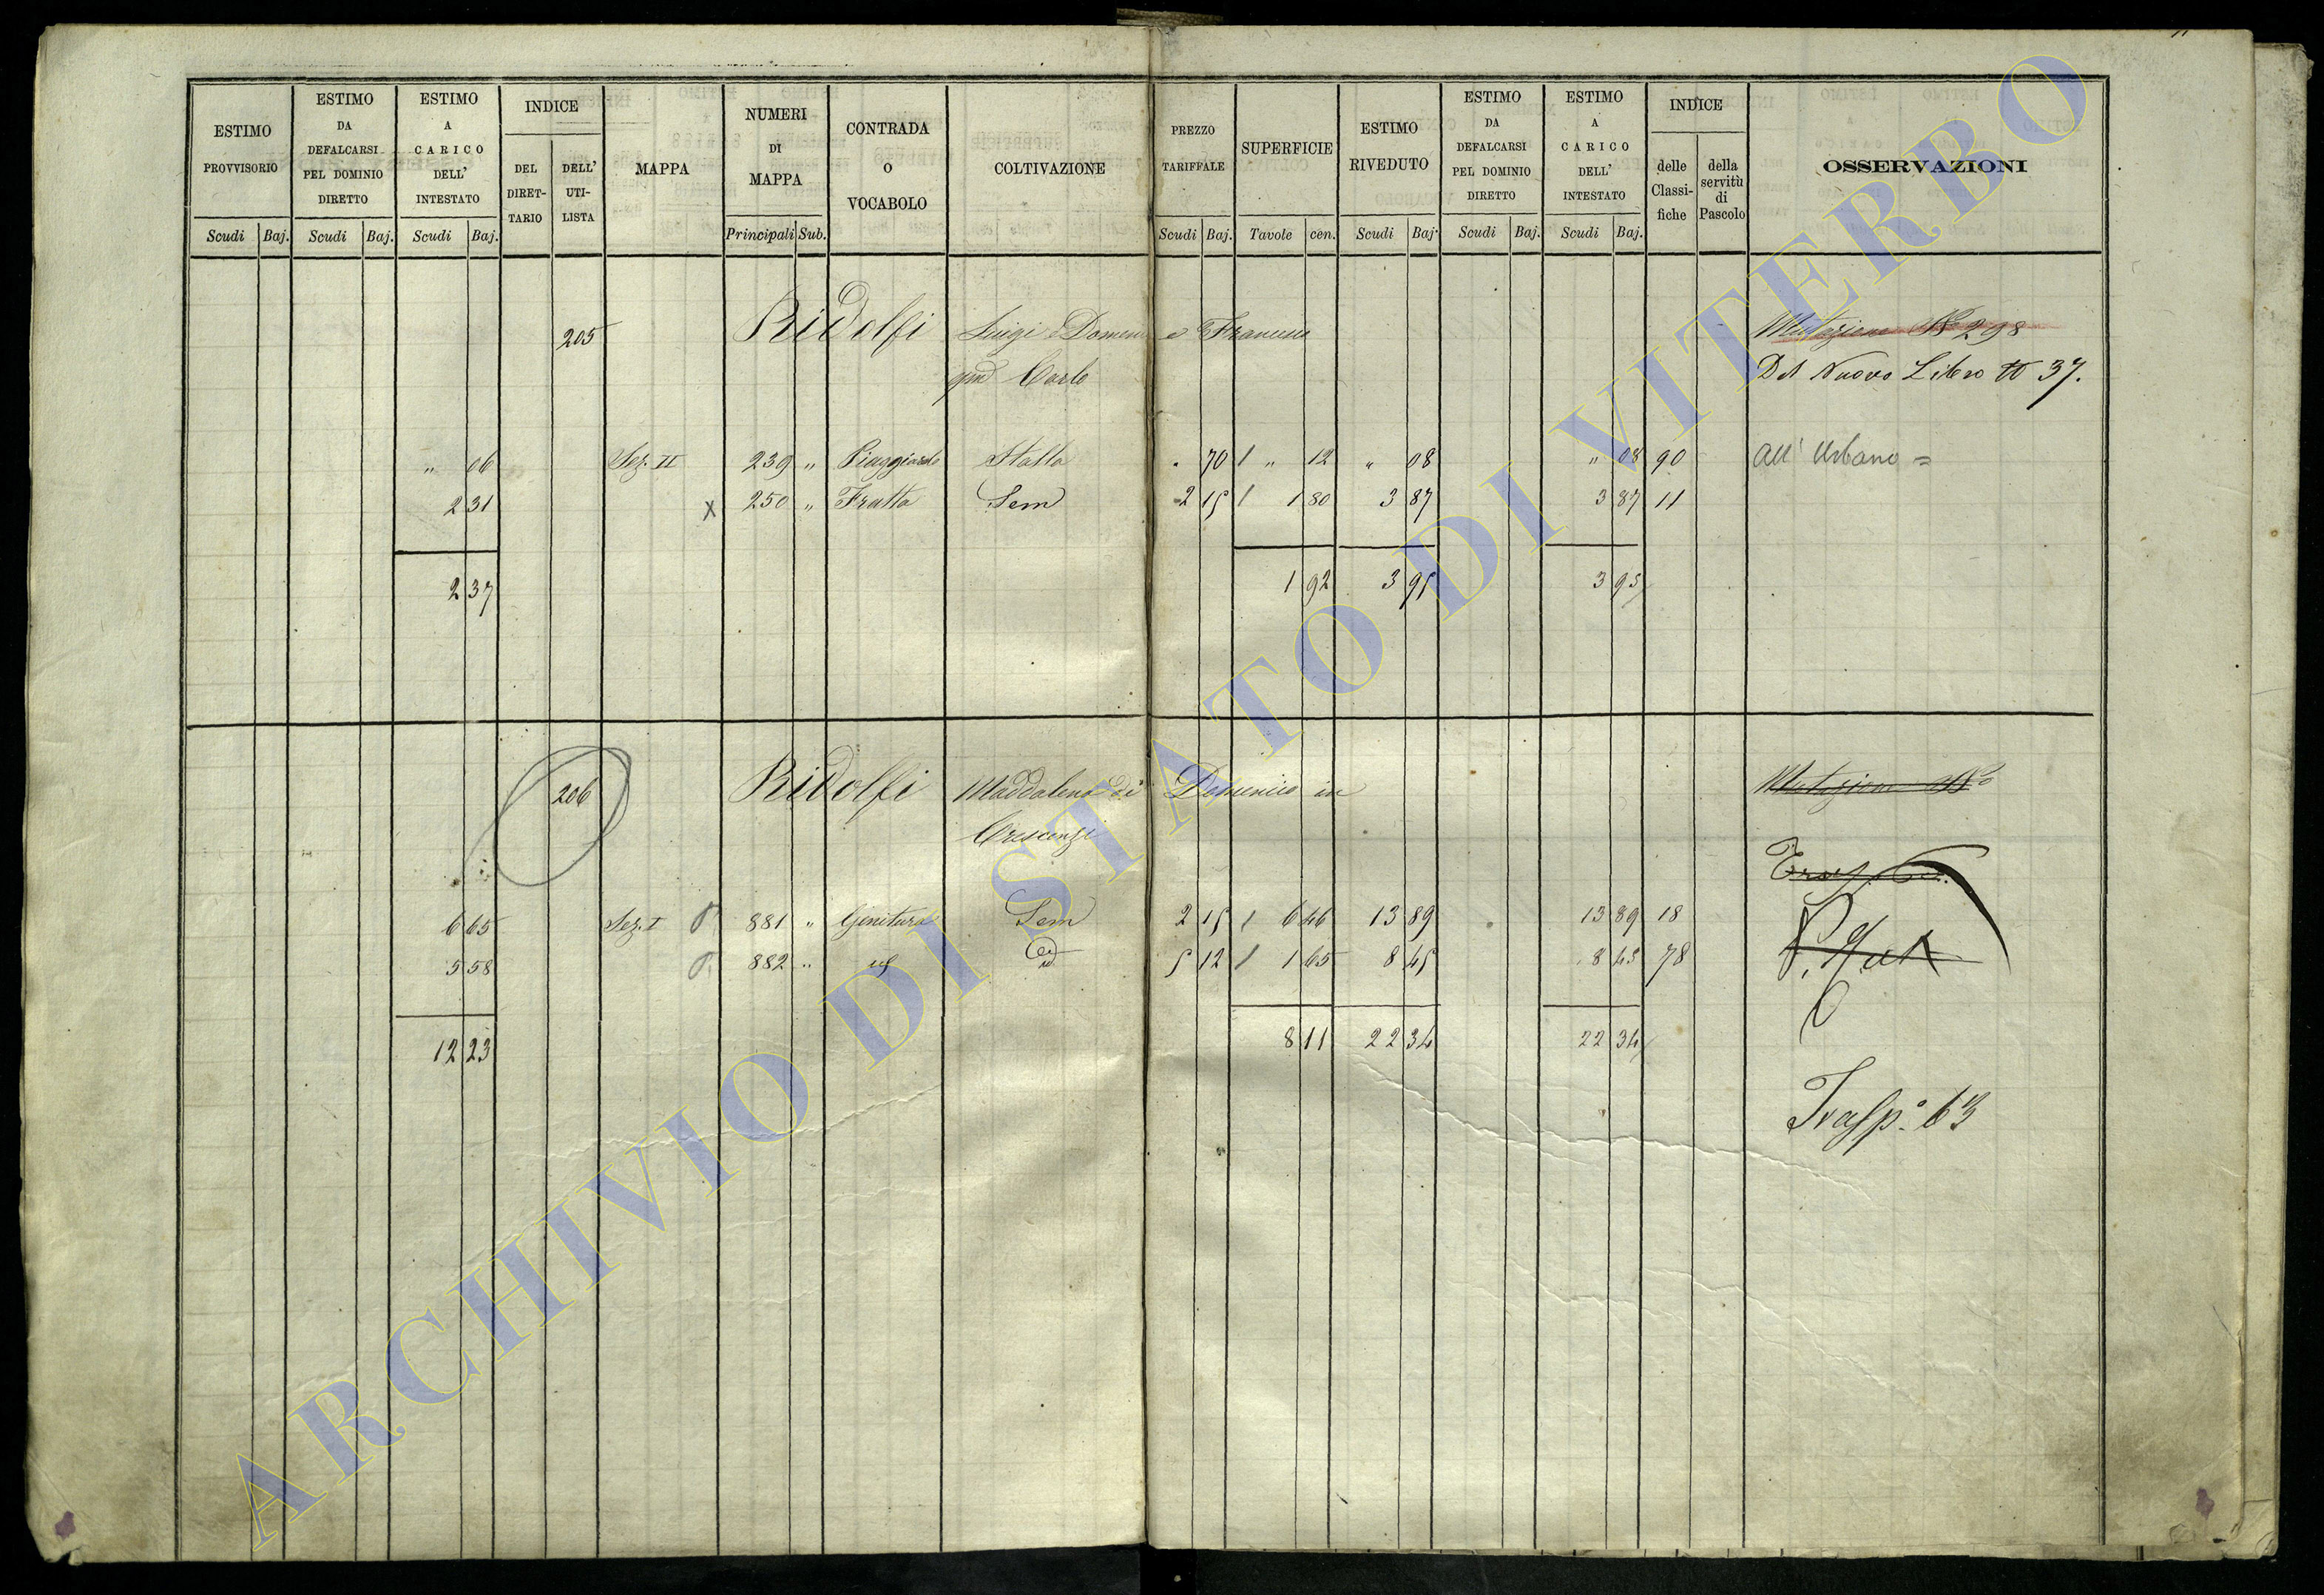 ESTIMO PROVVISORIO
Scudi Baj.
ESTIMO DA DEFALCARSI PEL DOMINIO DIRETTO
Scudi Baj.
ESTIMO A CARICO DELL' INTESTATO
Scudi Baj.
INDICE
DEL DIRET-TARIO
DELL' UTI-LISTA
MAPPA
NUMERI DI MAPPA
Principali Sub.
CONTRADA O VOCABOLO
COLTIVAZIONE
PREZZO TARIFFALE
Scudi Baj.
SUPERFICIE
Tavole cen.
ESTIMO RIVEDUTO
Scudi Baj.
ESTIMO DA DEFALCARSI PEL DOMINIO DIRETTO
Scudi Baj.
ESTIMO A CARICO DELL' INTESTATO
Scudi Baj.
INDICE
delle Classi-fiche
della servitù di Pascolo
OSSERVAZIONI
205 Ridolfi Luigi Domen e Francesco Mutazione No 298
qm Carlo Del Nuovo Libro 37.
„ 06 Sez. II 239 „ Piaggiarole Stalla „ 70 / „ 12 „ 08 „ 08 90 All' Urbano =
2 31 x 250 „ Fratta Sem 2 15 / 1 80 3 87 3 87 11
2 37 1 92 3 95 3 95
206 Ridolfi Maddalena di Domenico in Mutazione No
Crescenzi
6 65 Sez. I 881 „ Genitura Sem 2 15 / 6 46 13 89 13 89 18
5 58 882 „ 5 12 / 1 65 8 45 8 45 78
12 23 8 11 22 34 22 34
Trasp.o 63
ARCHIVIO DI STATO DI VITERBO